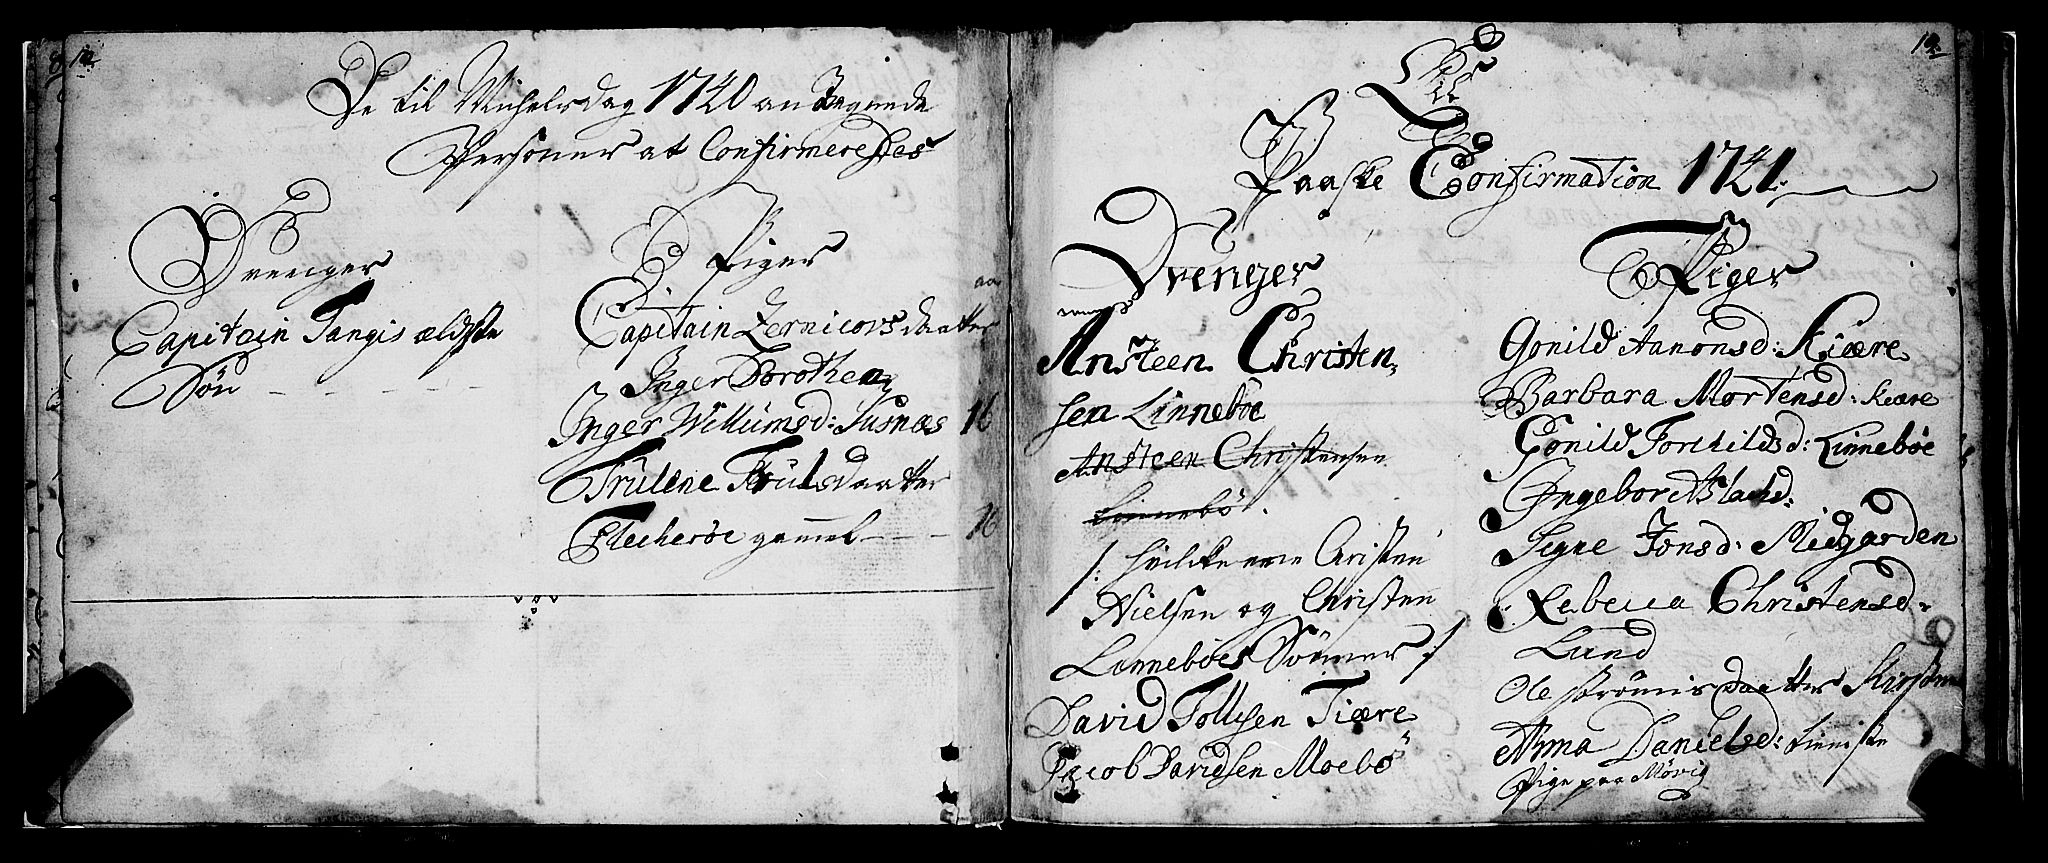 De til Michelsdag 1740 an Tegnede
Personer at Confirmeres
Drenger
Capitain Tangis ældste
Søn
Piger
aar
Capitain Zernicovs daatter
Inger Dorothea
Inger Willumsd: Kusnæs 16
Trulene Trulsdaatter
Fleckerøe gammel - - - 16
12
Til
Paaske Confirmation 1741.
Drenger
Ansteen Christen-
sen Linnebøe
Ansteen Christensen
Linnebø.
/: hvilcke ere Christen
Nielsen og Christen
Linnebøes Sønner :/
David Tollisen Tiære
Jacob Davidsen Moebø
Piger
Gonild Aanonsd: Kiære
Barbara Mortensd: Kiære
Gonild Torchildsd: Linnebøe
Ingebor Aslachd:
Signe Jonsd: Midgarden
Rebecca Christensd:
Lund
Ole Strømis daatter Kirsten
Anna Danielsd:
Pige paa Møvig